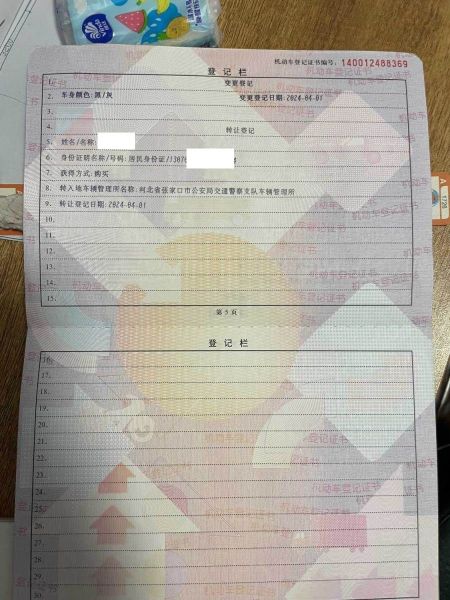 机动车登记证书编号：140012488369
登记栏
1. 变更登记
2. 车身颜色:黑/灰 变更登记日期:2024-04-01
3.
4. 转让登记
5. 姓名/名称:
6. 身份证明名称/号码:居民身份证/13070 4
7. 获得方式:购买
8. 转入地车辆管理所名称:河北省张家口市公安局交通警察支队车辆管理所
9. 转让登记日期:2024-04-01
10.
11.
12.
13.
14.
15.
第5页
登记栏
16.
17.
18.
19.
20.
21.
22.
23.
24.
25.
26.
27.
28.
29.
30.